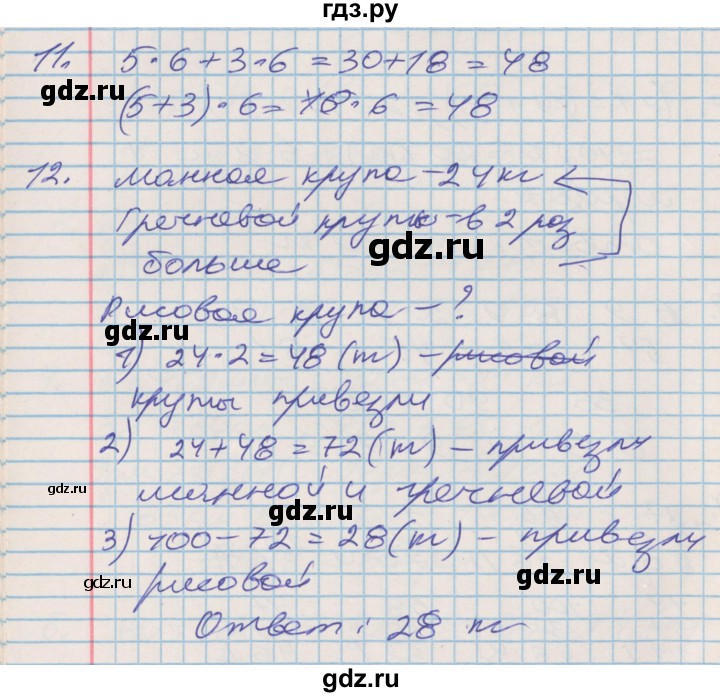 гдз.ру
11. 5·6+3·6=30+18=48
gdz.ru
(5+3)·6=18·6=48
gdz.ru
12. Манная крупа-24кг
Гречневой крупы-в 2 раз
gdz.ru
больше
Рисовая крупа-?
gdz.ru
1) 24·2=48(т)-рисовой
крупы привезли
2) 24+48=72(т)-привезли
gdz.ru
манной и гречневой
gdz.ru
3) 100-72=28(т)-привезли
gdz.ru
рисовой
Ответ: 28 кг
gdz.ru